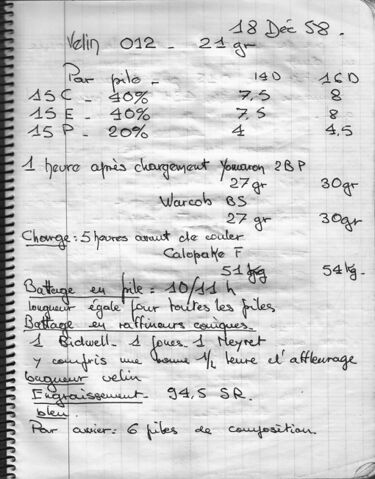 18 Déc 58.
Velin 012 - 21 gr
Par pile - 14D 16D
15 C - 40% 7,5 8
15 E - 40% 7,5 8
15 P - 20% 4 4,5
1 heure après chargement Yomaron 2BP
27 gr 30 gr
Warcob BS
27 gr 30 gr
Charge : 5 heures avant de couler
Calopake F
51 kg 54 kg.
Battage en pile = 10/11 h
longueur égale pour toutes les piles
Battage en raffineurs coniques.
1 Bidwell - 1 Jones. 1 Neyret
y compris une bonne 1/2 heure d'affleurage
longueur velin
Engraissement. 94,5 SR.
bleu.
Par cuvier : 6 piles de composition.